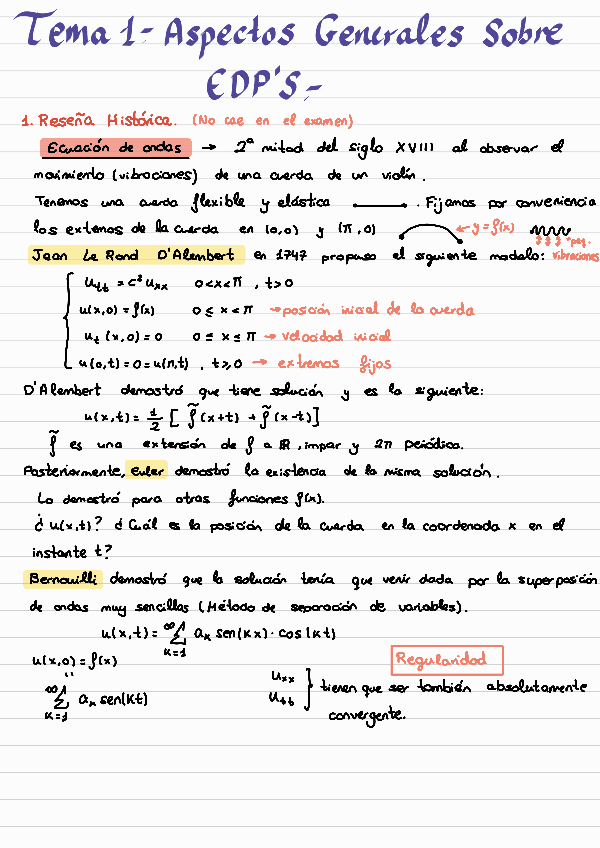 Tema 1- Aspectos Generales Sobre
EDP'S.-
1. Reseña Histórica. (No cae en el examen)
Ecuación de ondas → 2ª mitad del siglo XVIII al observar el
movimiento (vibraciones) de una cuerda de un violín.
Tenemos una cuerda flexible y elástica . Fijamos por conveniencia
los extremos de la cuerda en (0,0) y (π,0) ← y = f(x)
Jean Le Rond D'Alembert en 1747 propuso el siguiente modelo: vibraciones
u_tt = c² u_xx 0<x<π , t>0
u(x,0) = f(x) 0 ≤ x ≤ π → posición inicial de la cuerda
u_t (x,0) = 0 0 ≤ x ≤ π → velocidad inicial
u(0,t) = 0 = u(π,t) , t≥0 → extremos fijos
D'Alembert demostró que tiene solución y es la siguiente:
u(x,t) = 1/2 [ f̃(x+t) + f̃(x-t)]
f̃ es una extensión de f a ℝ, impar y 2π periódica.
Posteriormente, Euler demostró la existencia de la misma solución.
Lo demostró para otras funciones f(x).
¿u(x,t)? ¿Cuál es la posición de la cuerda en la coordenada x en el
instante t?
Bernouilli demostró que la solución tenía que venir dada por la superposición
de ondas muy sencillas (Método de separación de variables).
u(x,t) = ∞ Σ k=1 a_k sen(kx) · cos(kt)
u(x,0) = f(x)
Regularidad
"
∞ Σ k=1 a_k sen(kt)
u_xx
u_tt } tienen que ser también absolutamente
convergente.